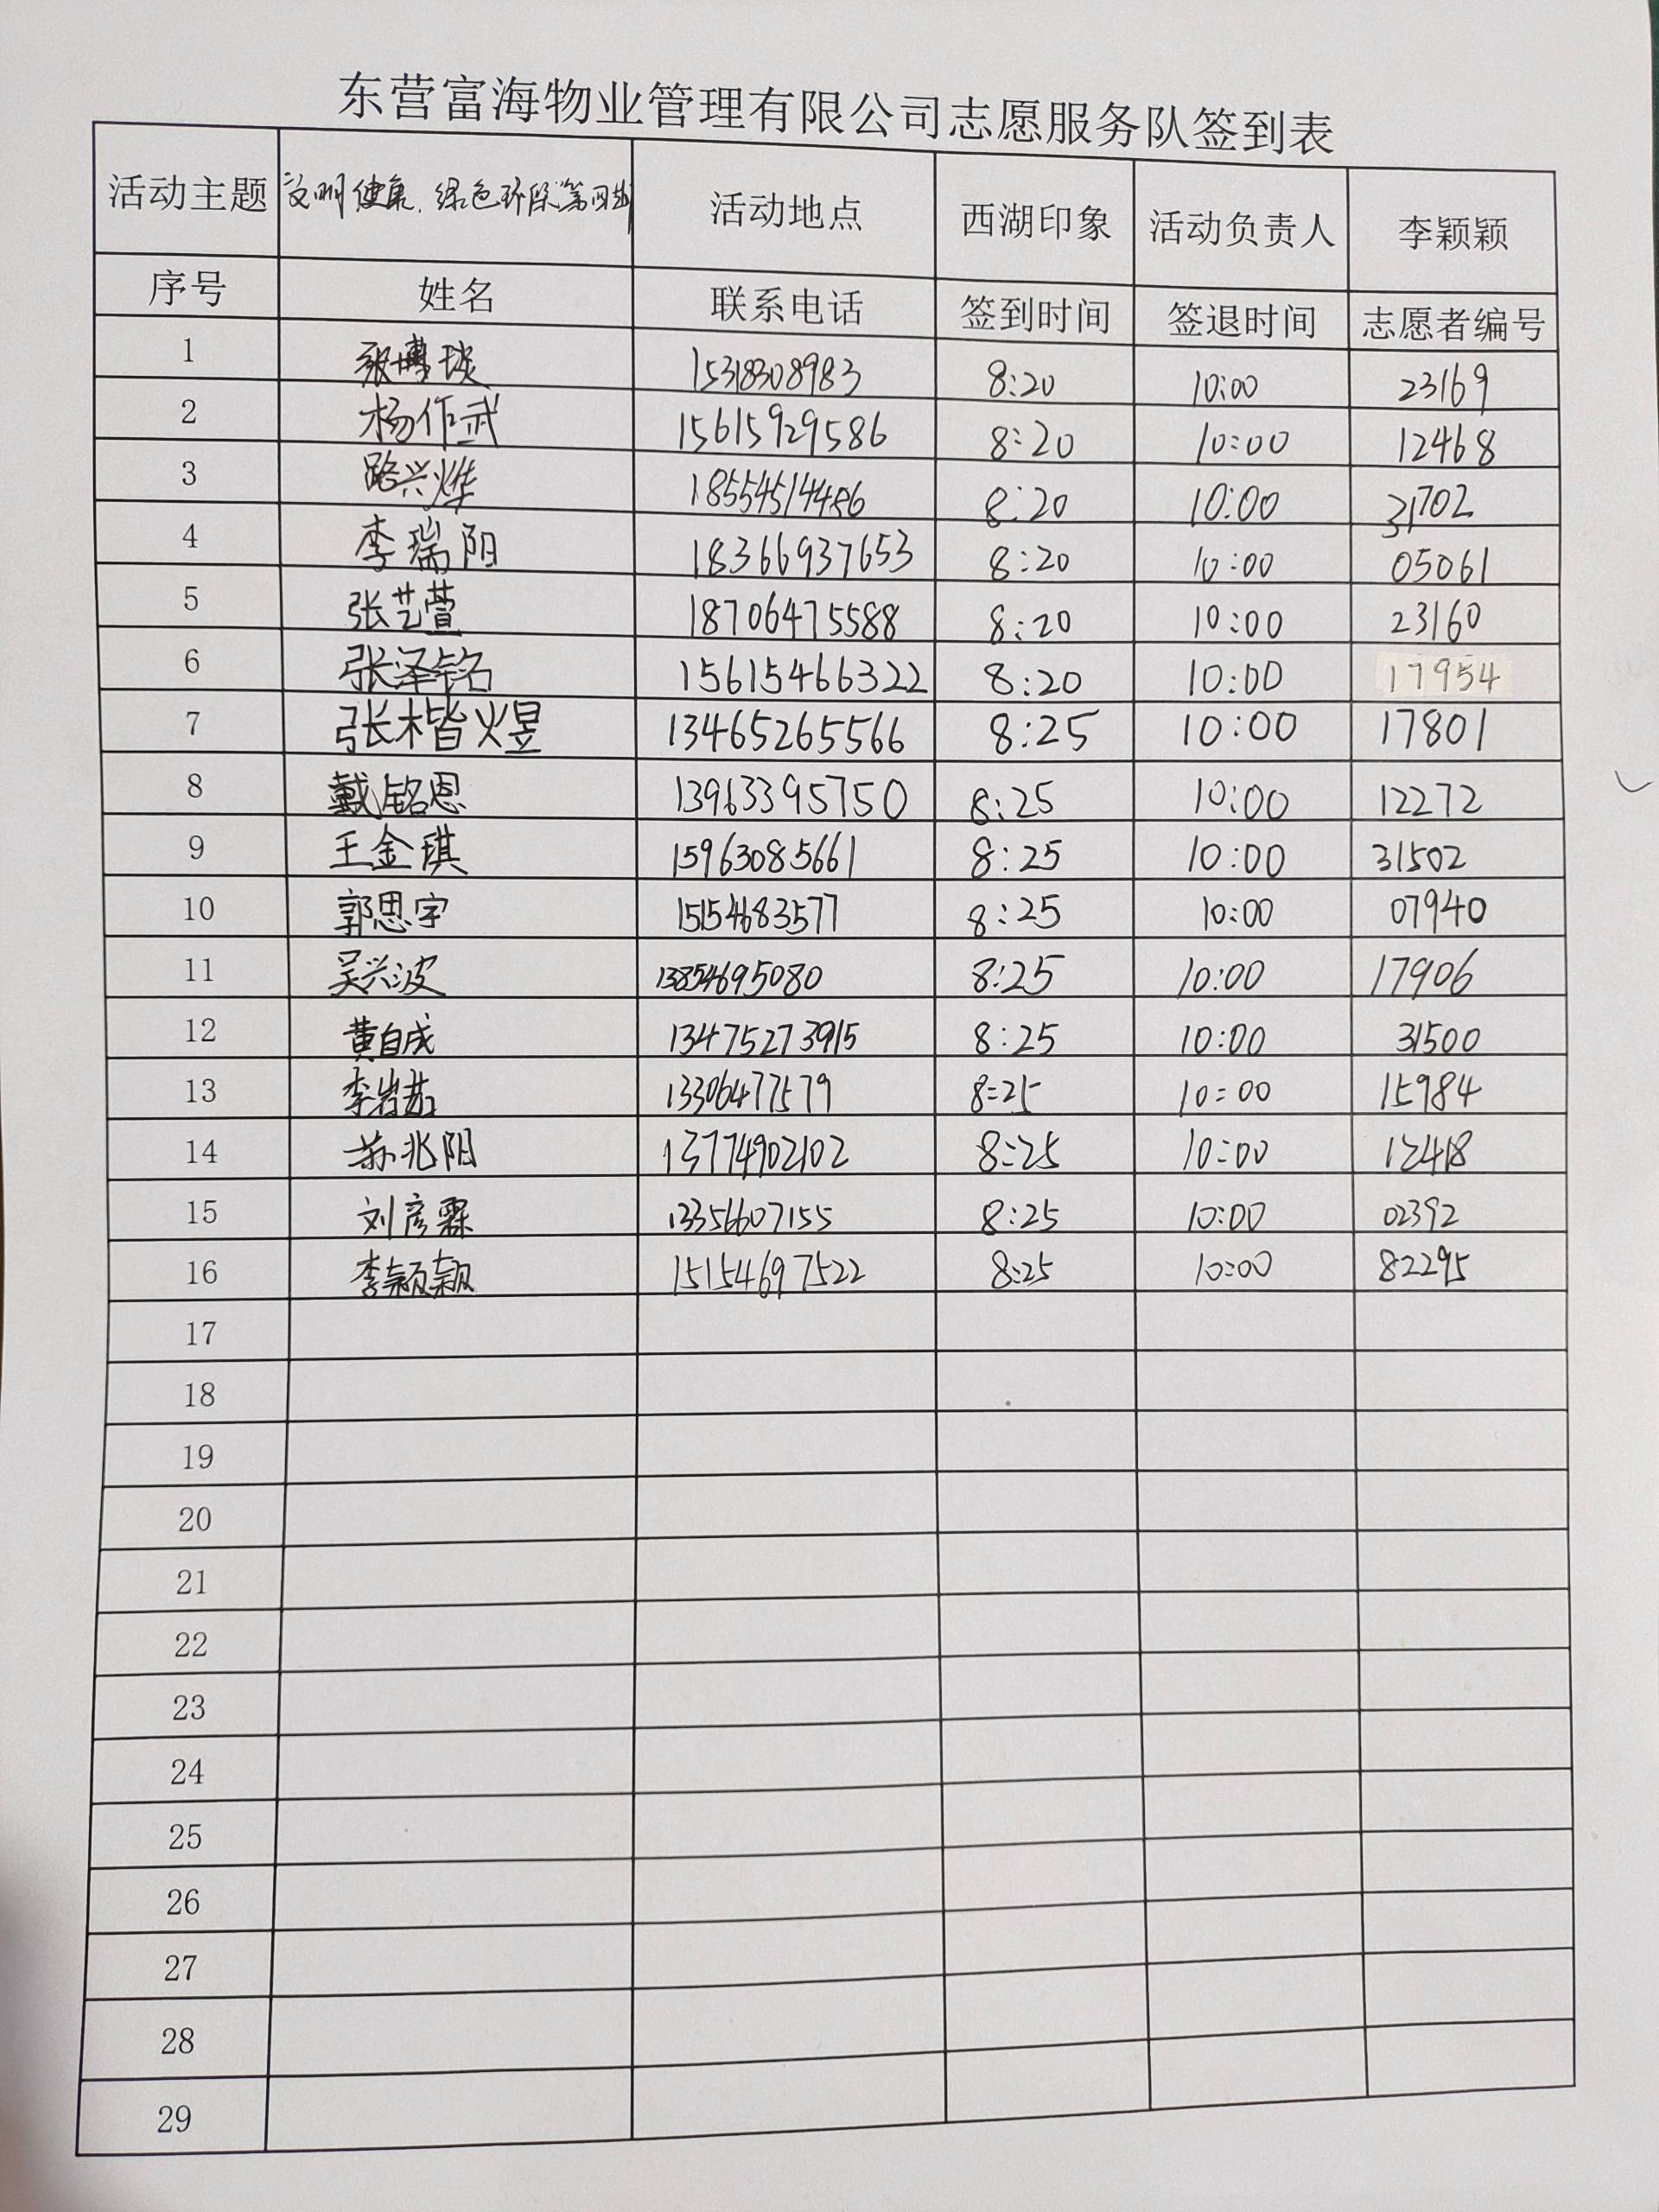 东营富海物业管理有限公司志愿服务队签到表
活动主题 文明健康、绿色环保第四期 活动地点 西湖印象 活动负责人 李颖颖
序号 姓名 联系电话 签到时间 签退时间 志愿者编号
1 张博琰 15318308983 8:20 10:00 23169
2 杨作武 15615929586 8:20 10:00 12468
3 路兴烨 18554514486 8:20 10:00 31702
4 李瑞阳 18366937653 8:20 10:00 05061
5 张艺萱 18706475588 8:20 10:00 23160
6 张泽铭 15615466322 8:20 10:00 17954
7 张楷煜 13465265566 8:25 10:00 17801
8 戴铭恩 13963395750 8:25 10:00 12272
9 王金琪 15963085661 8:25 10:00 31502
10 郭思宇 15154683577 8:25 10:00 07940
11 吴兴波 13854695080 8:25 10:00 17906
12 黄自成 13475273915 8:25 10:00 31500
13 李岩喆 13306477579 8:25 10:00 15984
14 苏兆阳 13774902102 8:25 10:00 12418
15 刘彦霖 13356607155 8:25 10:00 02392
16 李颖颖 15154697522 8:25 10:00 82295
17
18
19
20
21
22
23
24
25
26
27
28
29